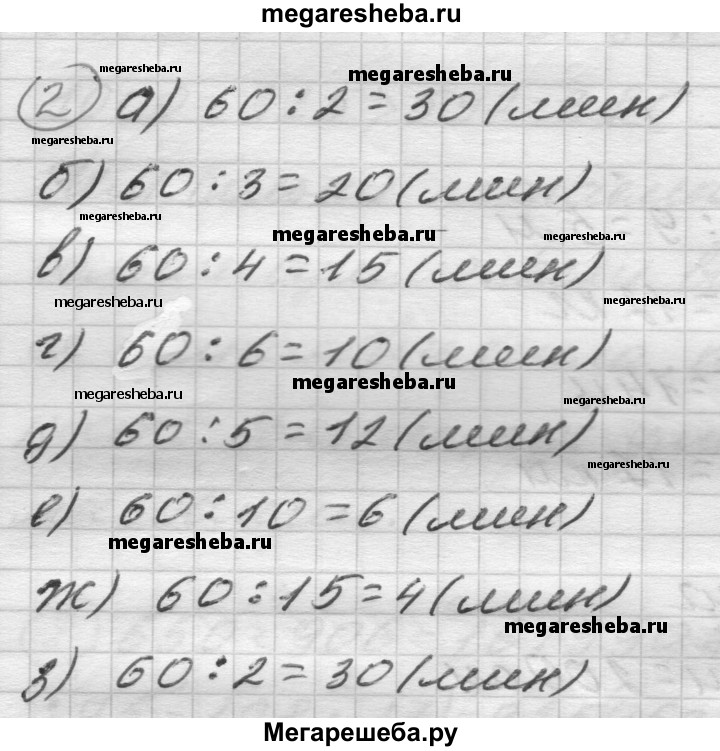 megaresheba.ru
megaresheba.ru
megaresheba.ru
2 а) 60 : 2 = 30 (мин)
megaresheba.ru
б) 60 : 3 = 20 (мин)
megaresheba.ru
megaresheba.ru
megaresheba.ru
в) 60 : 4 = 15 (мин)
megaresheba.ru
megaresheba.ru
г) 60 : 6 = 10 (мин)
megaresheba.ru
megaresheba.ru
megaresheba.ru
д) 60 : 5 = 12 (мин)
megaresheba.ru
е) 60 : 10 = 6 (мин)
megaresheba.ru
ж) 60 : 15 = 4 (мин)
megaresheba.ru
з) 60 : 2 = 30 (мин)
Мегарешеба.ру